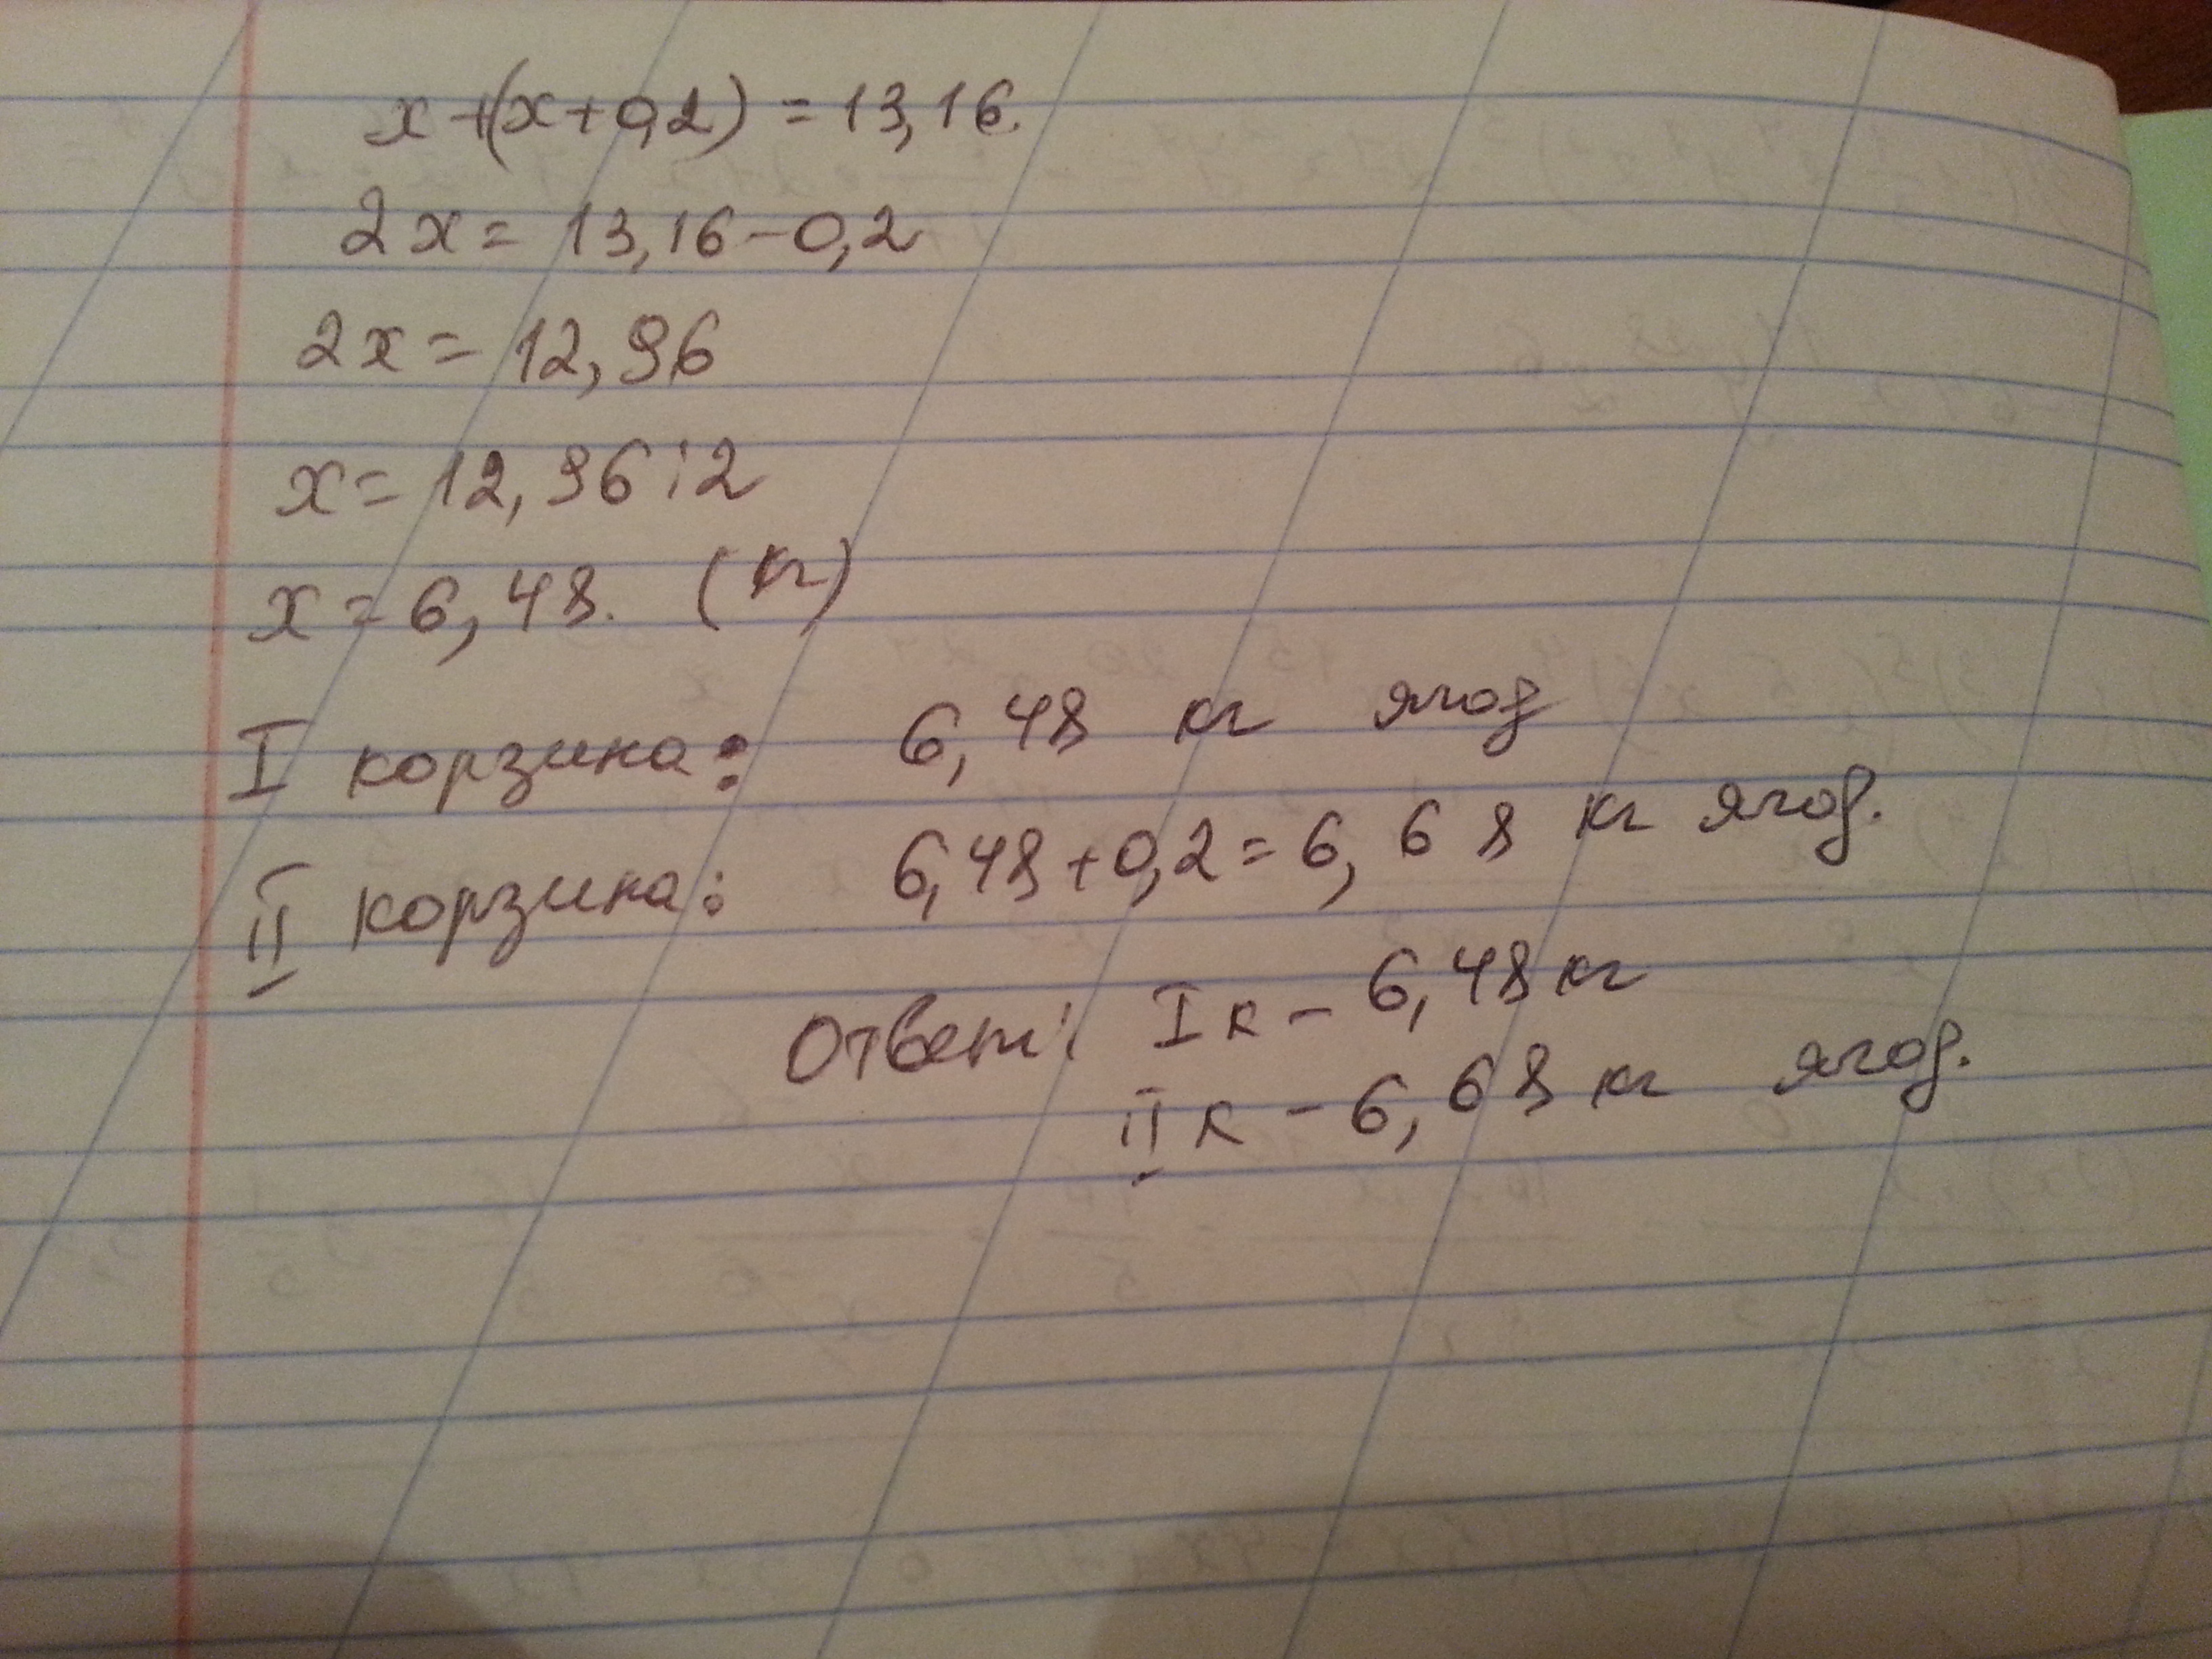 x+(x+0,2) = 13,16.
2x = 13,16-0,2
2x = 12,96
x = 12,96:2
x = 6,48. (кг)
I корзина: 6,48 кг ягод
II корзина: 6,48+0,2=6,68 кг ягод.
Ответ: I к - 6,48 кг
II к - 6,68 кг ягод.